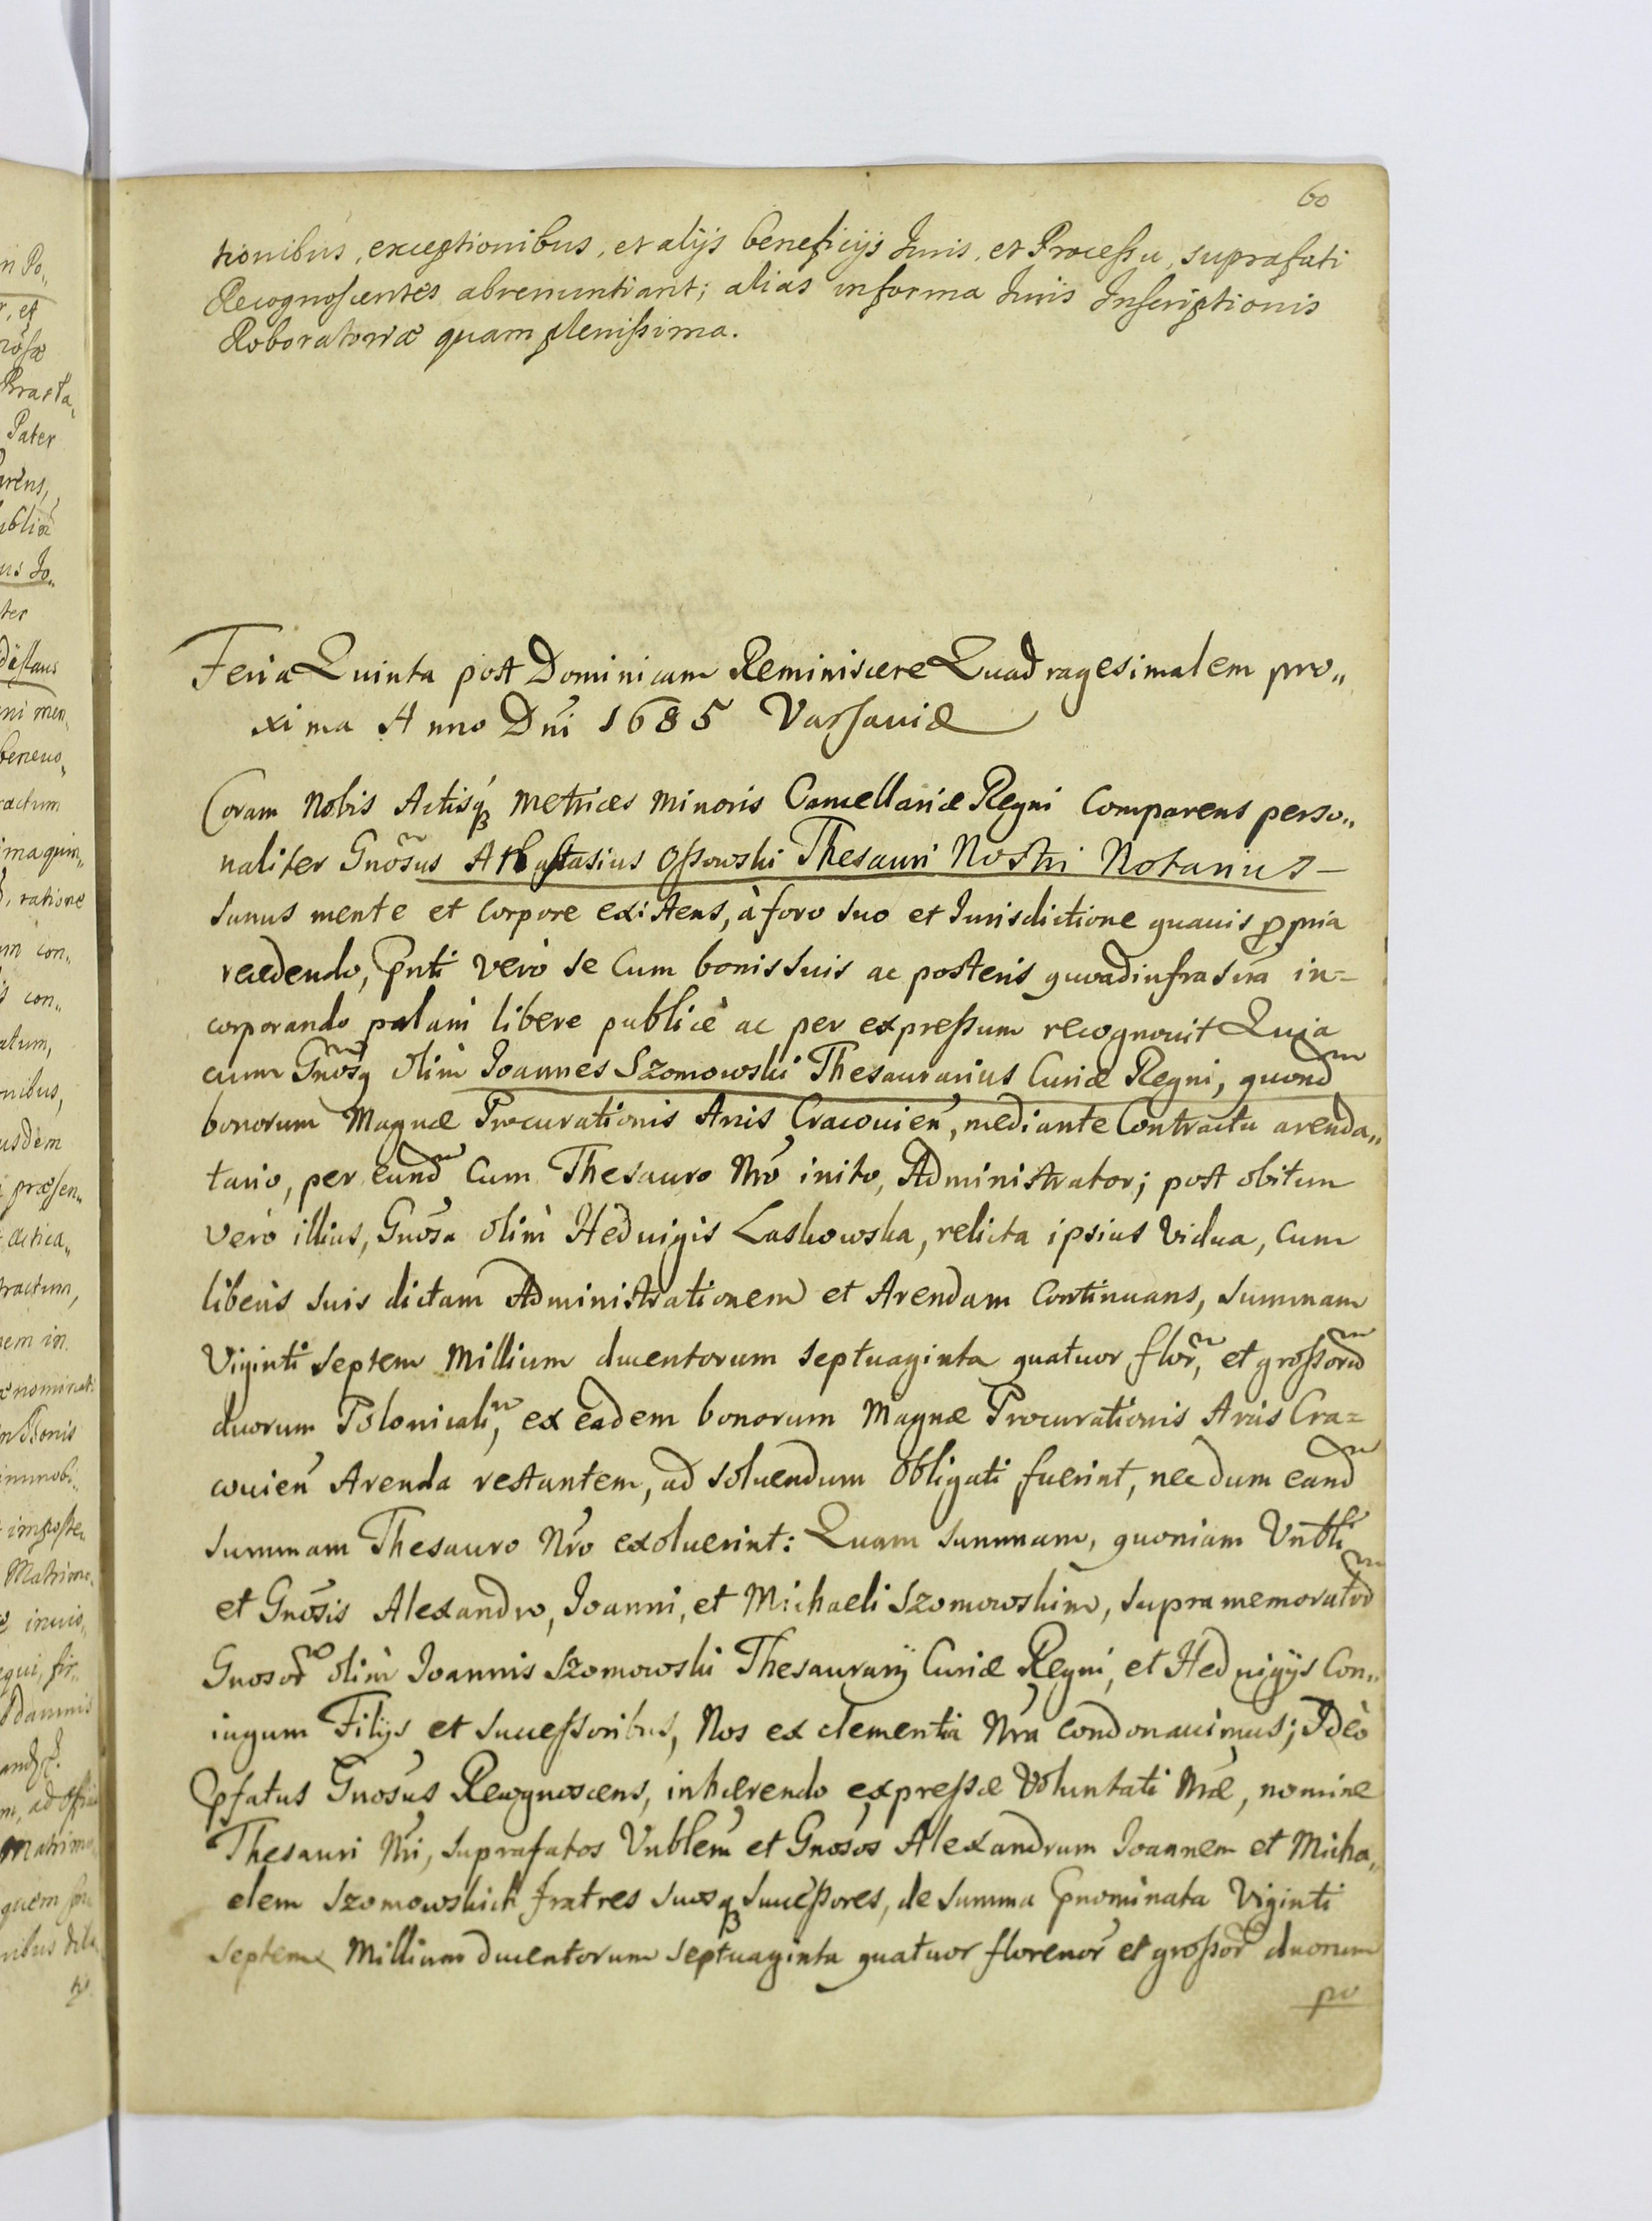 60
tionibus, exceptionibus, et alijs beneficijs Juris, et Processu, suprafati
Recognoscentes abrenuntiant; alias in forma Juris Inscriptionis
Roboratoriæ quam plenissima.
Feria Quinta post Dominicam Reminiscere Quadragesimalem pro„
xima Anno Dn̄i 1685 Varsaviæ
Coram Nobis Actisq3 Metrices Minoris Cancellariæ Regni Comparens perso„
naliter Gnōsus Athastasius Ossowski Thesauri Nostri Notarius —
Sanus mente et Corpore existens, à foro suo et Jurisdictione quavis ꝓpria
recedendo, p̄nti verò se Cum bonis suis ac posteris quoad infra scr̄a in=
corporando palàm liberè publicè ac per expressum recognovit Quia
cum Gnōsq olim Joannes Szomowski Thesaurarius Curiæ Regni, quond̄
bonorum Magnæ Procurationis Arcis Cracovien̄, mediante Contractu arenda„
tario, per eund̄ Cum Thesauro Nr̄o inito, Administrator; post obitum
verò illius, Gnōsa olim Hedvigis Laskowska, relicta ipsius Vidua, Cum
liberis suis dictam Administrationem et Arendam Continuans, summam
Viginti septem Millium ducentorum septuaginta quatuor flor̄, et grossorū
duorum Polonicali̅, ex eadem bonorum Magnæ Procurationis Arcis Cra=
covien̄ Arenda restantem, ad solvendum obligati fuerint, necdum eand̄
summam Thesauro Nr̄o exolverint: Quam summam, quoniam Vn̄bli
et Gnōsis Alexandro, Joanni, et Michaeli Szomowskim, supra memorator̄
Gnosor̄ olim Joannis Szomowski Thesaurarij Curiæ Regni, et Hedvigijs Con„
iugum Filijs et Successoribus, Nos ex clementia Nr̄a condonavimus; Ideò
p̄fatus Gnōsus Recognoscens, inhærendo expressæ Voluntati Nr̄æ, nomine
Thesauri Nr̄i, suprafatos Vnblēm et Gnōsos Alexandrum Joannem et Micha„
elem Szomowskich fratres suosq3 Successores, de summa p̄nominata Viginti
septem Millium ducentorum septuaginta quatuor florenor̄ et grossor̄ duorum
po